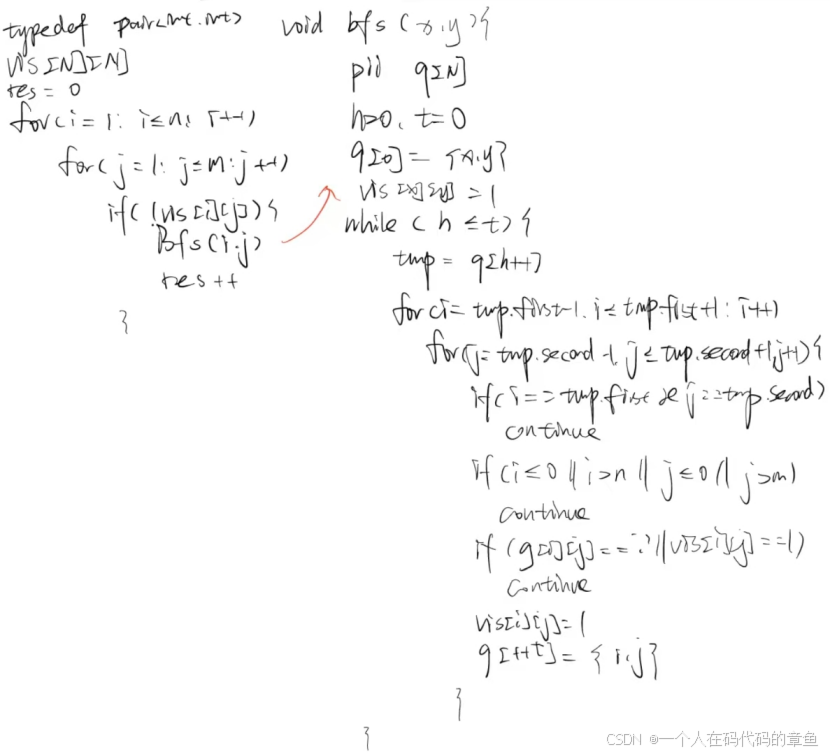 typedef pair<int.int>
vis[N][N]
res = 0
for(i=1; i≤n; i++)
for(j=1; j≤m; j++)
if(!vis[i][j]){
Bfs(i.j)
res++
}
void bfs(x.y){
pii q[N]
h=0. t=0
q[0]= {x.y}
vis[x][y]=1
while(h≤t){
tmp = q[h++]
for(i=tmp.first-1. i≤tmp.first+1; i++)
for(j=tmp.second-1, j≤tmp.second+1,j++){
if(i==tmp.first && j==tmp.second)
continue
if(i≤0||i>n||j≤0||j>m)
continue
if(g[i][j]=='.'||vis[i][j]==1)
continue
vis[i][j]=1
q[++t]={i.j}
}
}
CSDN @一个人在码代码的章鱼